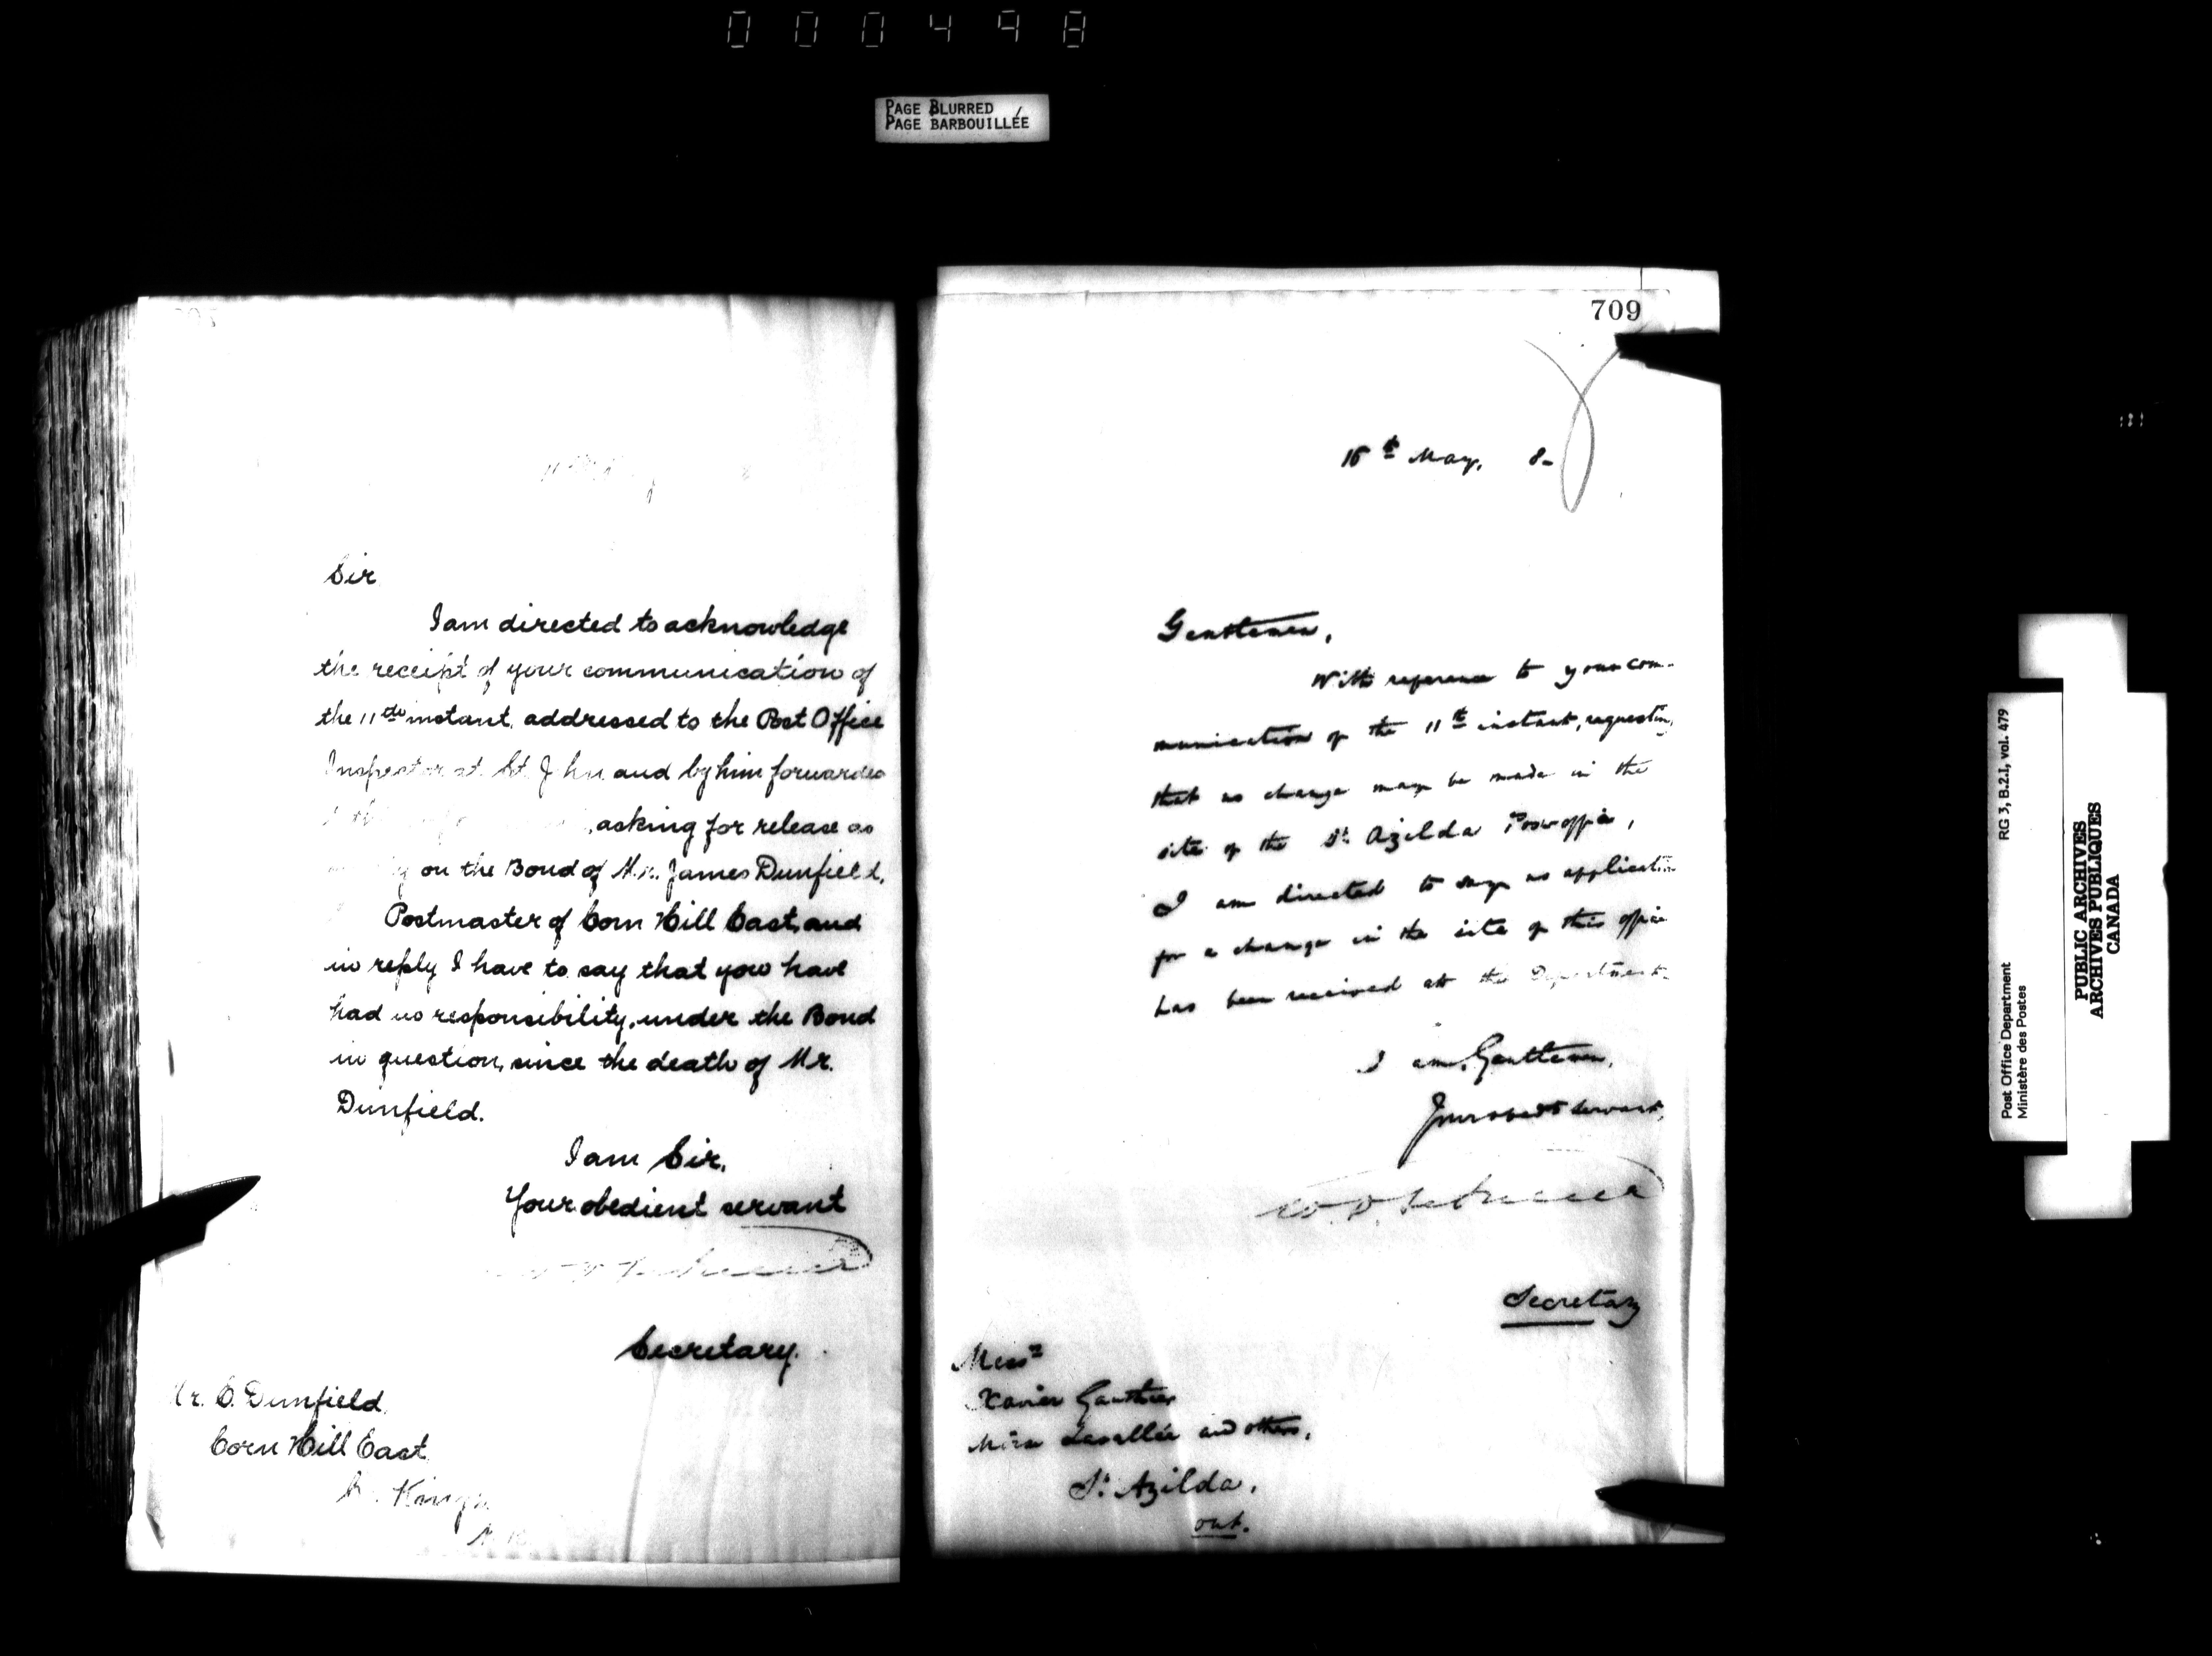 000498
PAGE BLURRED
PAGE BARBOUILLÉE
Sir
I am directed to acknowledge
the receipt of your communication of
the 11th instant, addressed to the Post Office
Inspector at St. John and by him forwarded
, asking for release as
on the Bond of Mr. James Dunfield,
Postmaster of Corn Hill East, and
in reply I have to say that you have
had no responsibility, under the Bond
in question, since the death of Mr.
Dunfield.
I am Sir,
Your obedient servant
Secretary.
Mr. C. Dunfield
Corn Hill East
Kings
N.B.
709
May, 8-
Gentlemen,
With reference to your com-
munication of the 11th instant, requesting
that no change may be made in the
site of the St. Azilda Post office,
I am directed to say no application
for a change in the site of this office
has been received at the Department.
I am, Gentlemen,
Your obedt servant,
Secretary
Messrs
Xavier Gauthier
Lavallée and others,
St. Azilda,
Ont.
Post Office Department
Ministère des Postes
RG 3, B.2.I, vol. 479
PUBLIC ARCHIVES
ARCHIVES PUBLIQUES
CANADA